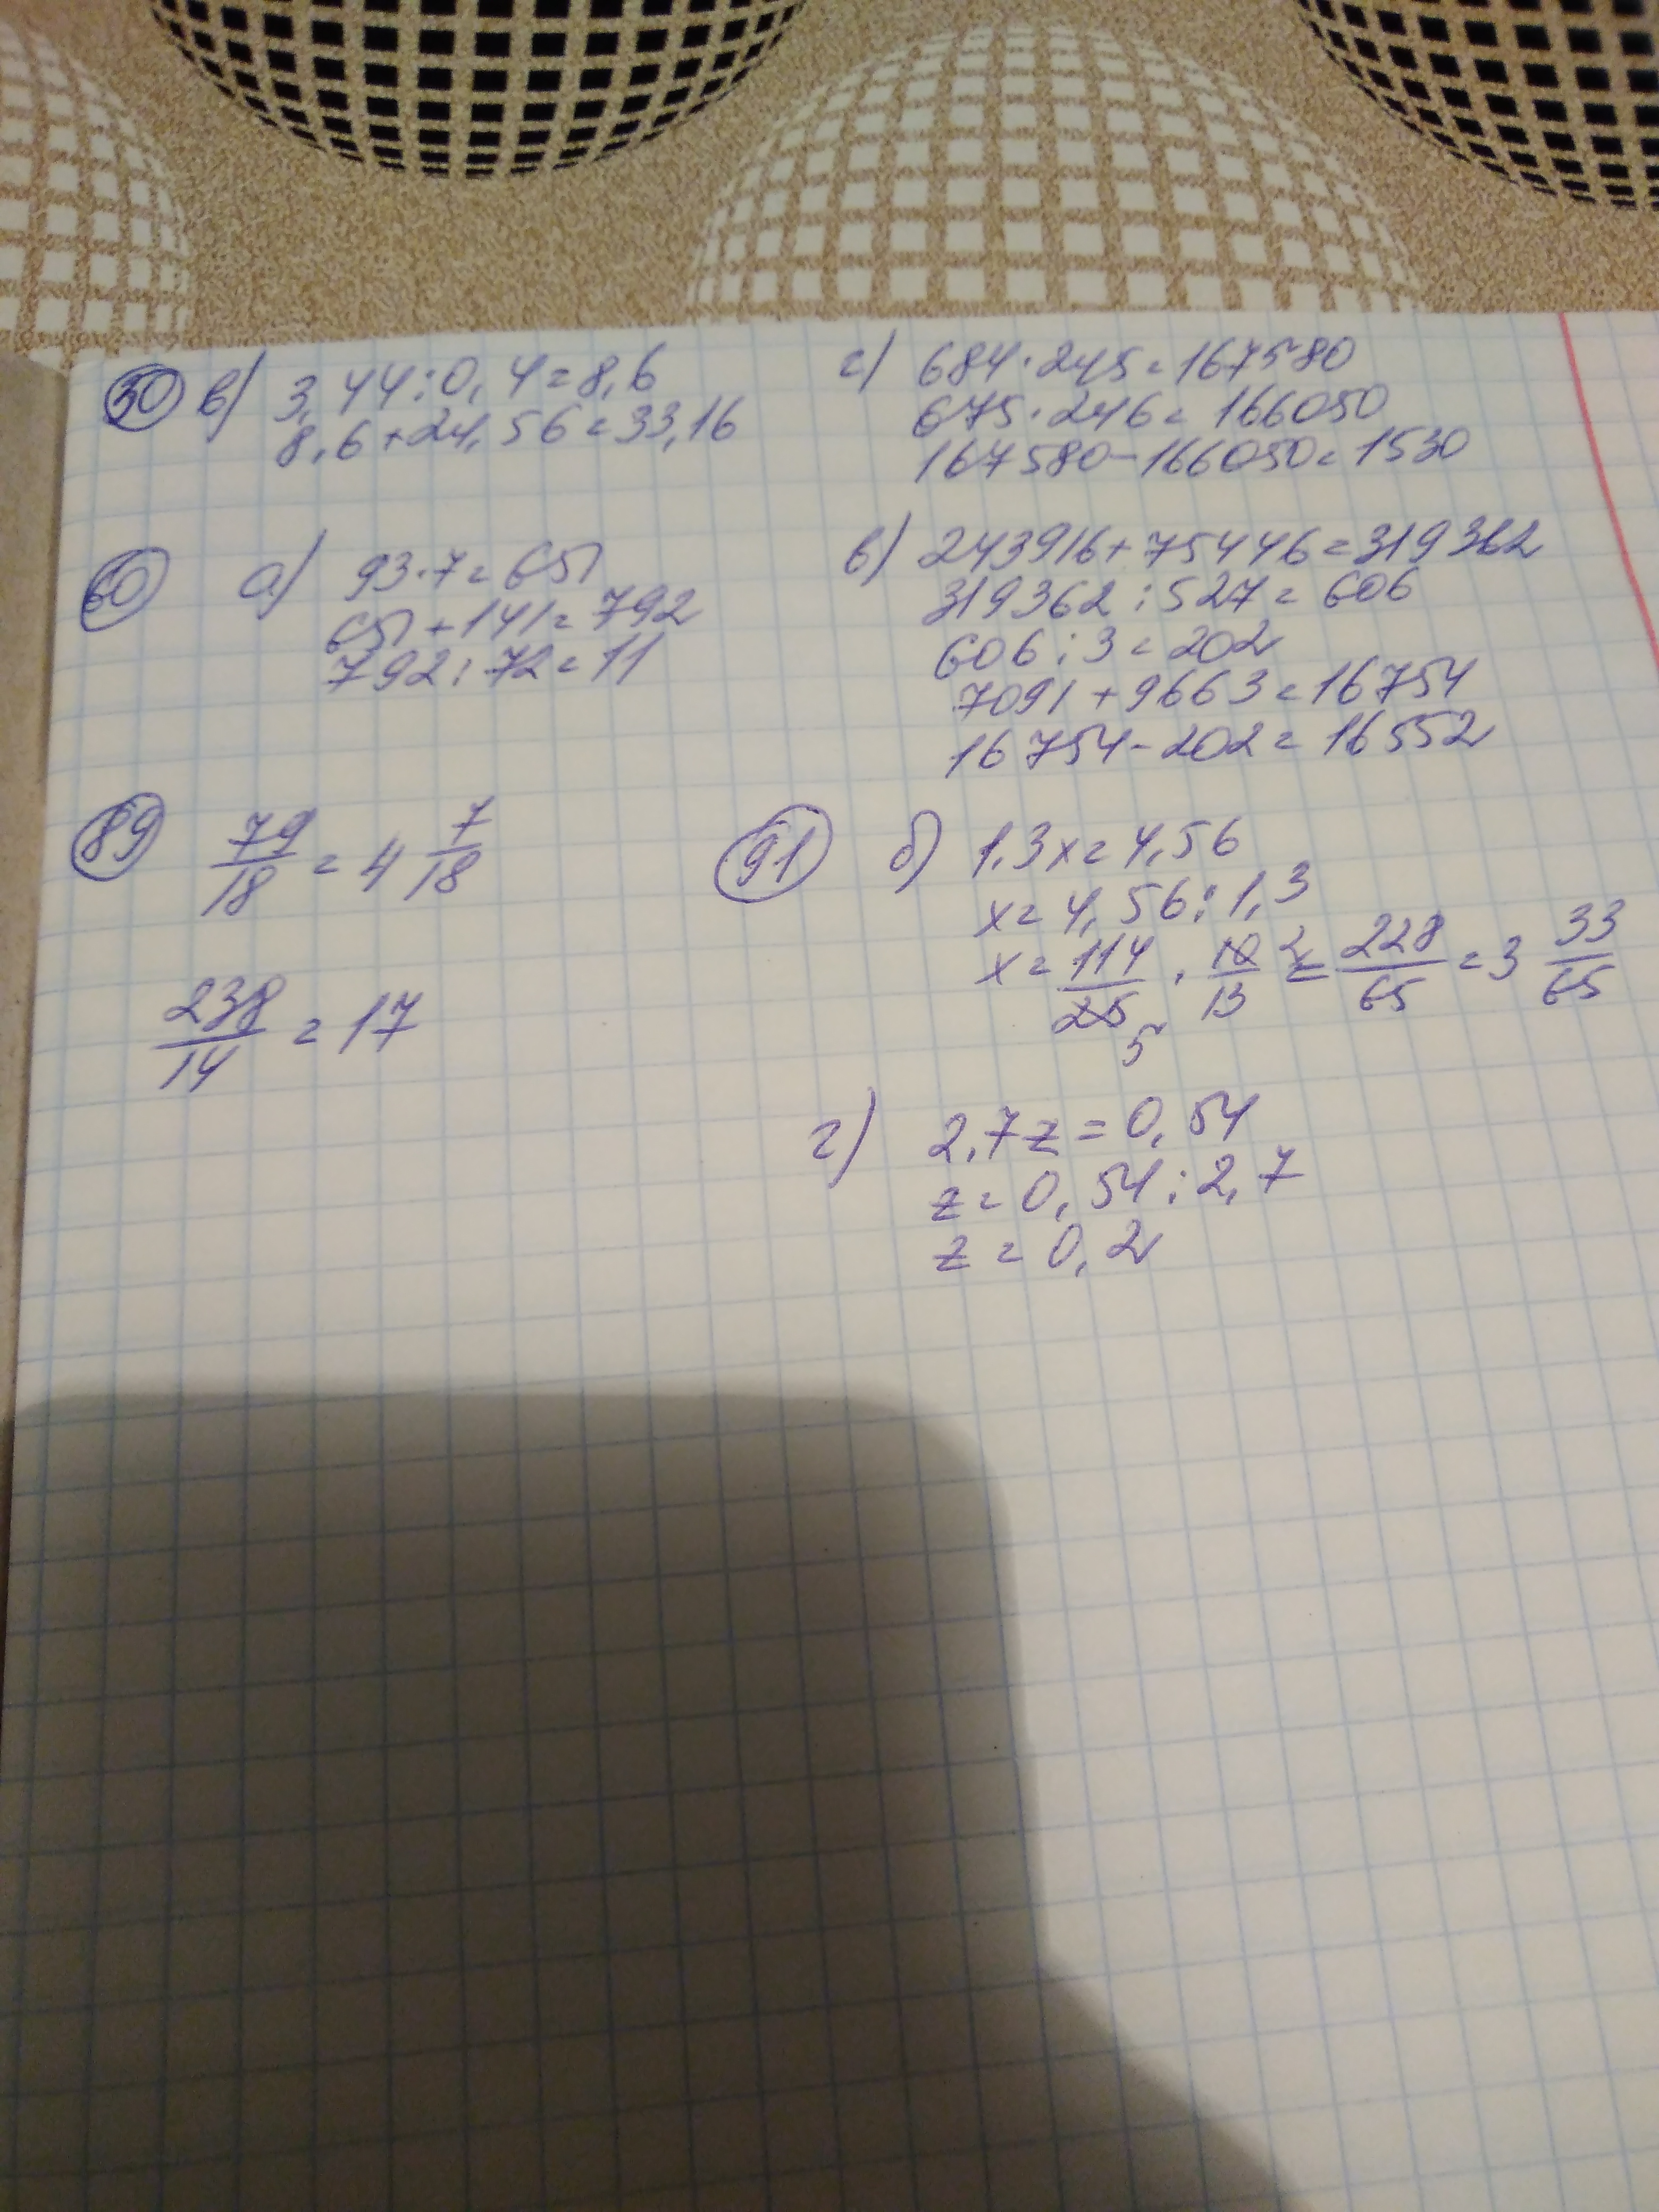 50 в) 3,44:0,4=8,6
8,6+24,56=33,16
г) 684·245=167580
675·246=166050
167580-166050=1530
60 а) 93·7=651
651+141=792
792:72=11
в) 243916+75446=319362
319362:527=606
606:3=202
7091+9663=16754
16754-202=16552
89 79/18 = 4 7/18
238/14 = 17
91 б) 1,3x=4,56
x=4,56:1,3
x= 114/25 5 · 10/13 2 = 228/65 = 3 33/65
г) 2,7z=0,54
z=0,54:2,7
z=0,2